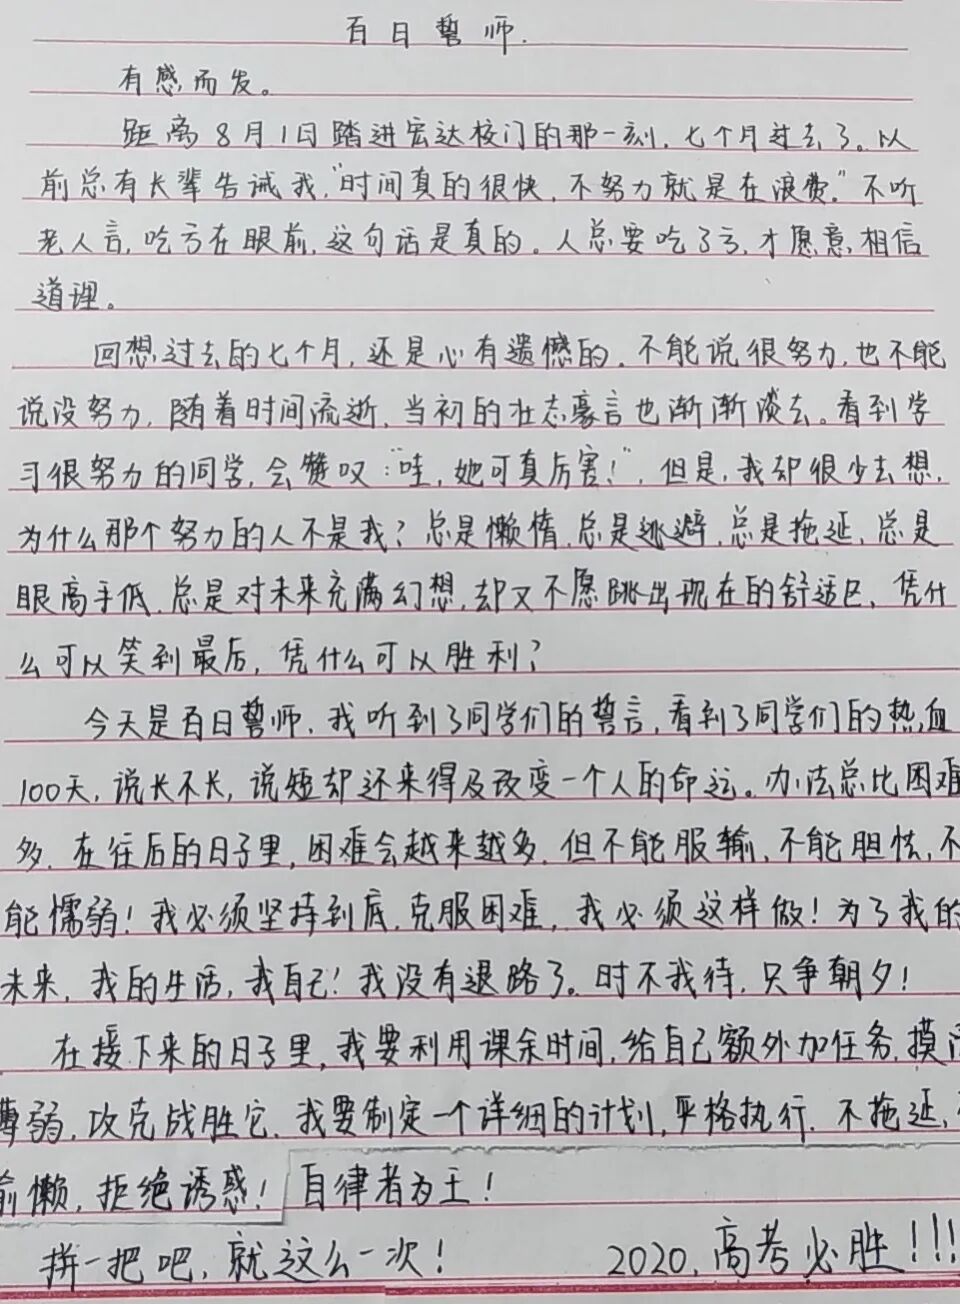 百日誓师.
有感而发。
距离8月1日踏进宏达校门的那一刻,七个月过去了。以
前总有长辈告诫我,"时间真的很快,不努力就是在浪费。"不听
老人言,吃亏在眼前,这句话是真的。人总要吃了亏,才愿意相信
道理。
回想过去的七个月,还是心有遗憾的.不能说很努力,也不能
说没努力,随着时间流逝,当初的壮志豪言也渐渐淡去。看到学
习很努力的同学,会赞叹:"哇,她可真厉害!",但是,我却很少去想,
为什么那个努力的人不是我?总是懒惰,总是逃避,总是拖延,总是
眼高手低,总是对未来充满幻想,却又不愿跳出现在的舒适区,凭什
么可以笑到最后,凭什么可以胜利?
今天是百日誓师,我听到了同学们的誓言,看到了同学们的热血
100天,说长不长,说短却还来得及改变一个人的命运。办法总比困难
多.在往后的日子里,困难会越来越多.但不能服输,不能胆怯,不
能懦弱!我必须坚持到底,克服困难,我必须这样做!为了我的
未来,我的生活,我自己!我没有退路了。时不我待,只争朝夕!
在接下来的日子里,我要利用课余时间,给自己额外加任务,摸
薄弱,攻克战胜它.我要制定一个详细的计划,严格执行.不拖延,
偷懒,拒绝诱惑!自律者为王!
拼一把吧,就这么一次! 2020,高考必胜!!!